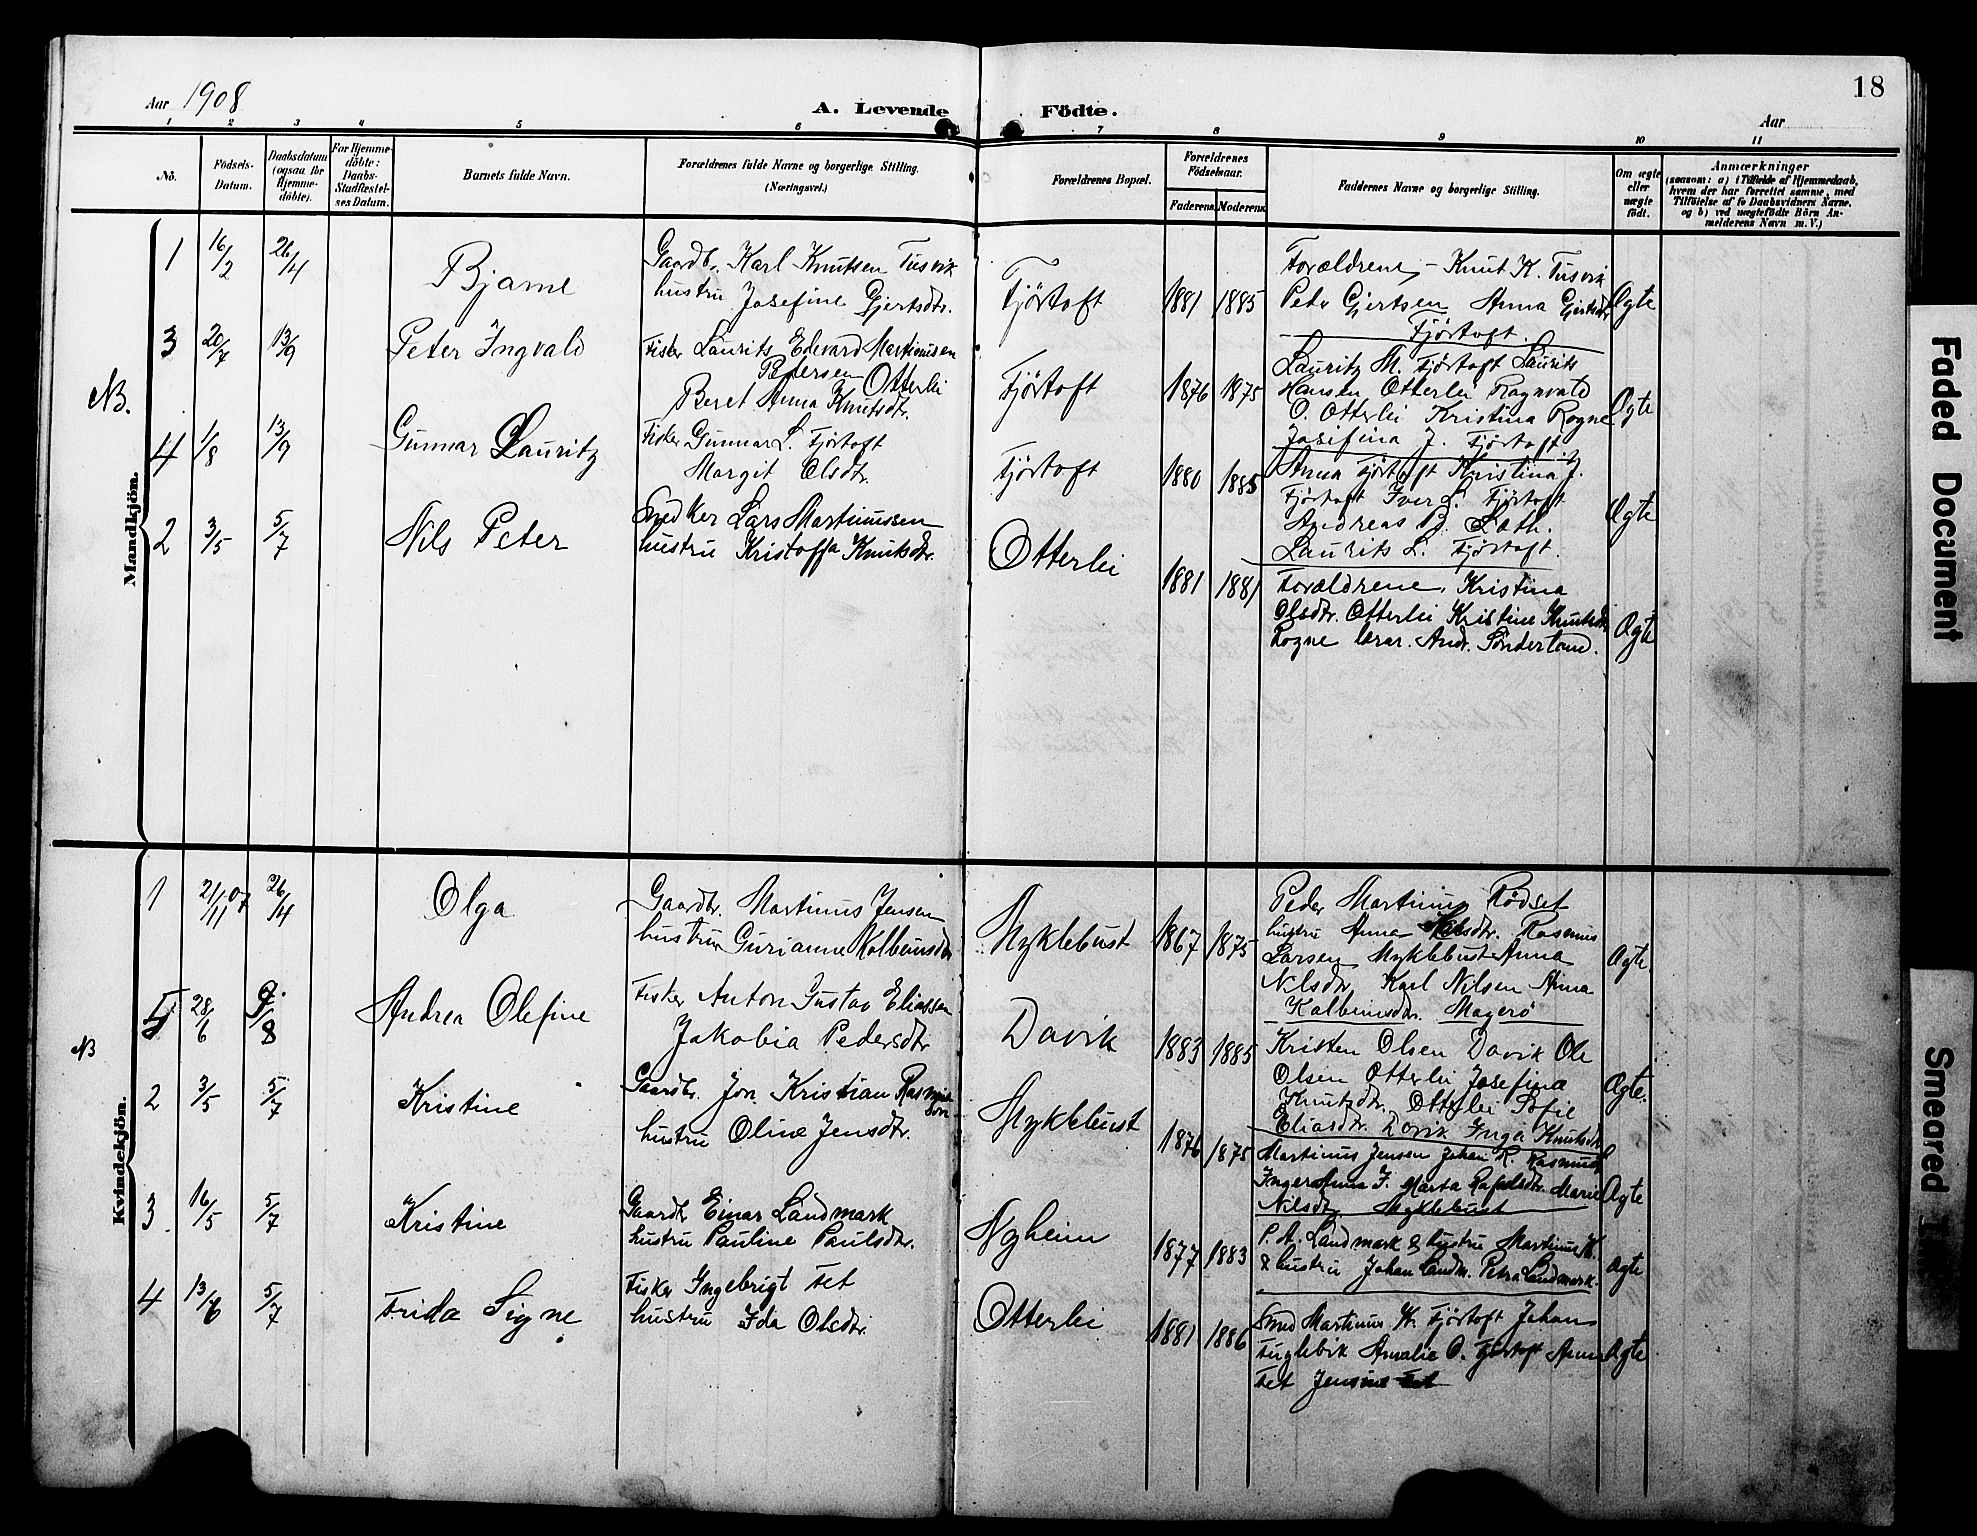 18
Aar 1908
A. Levende Födte.
Aar
1 2 3 4 5 6 7 8 9 10 11
Nö.
Födsels-Datum.
Daabsdatum (ogsaa for Hjemme-döbte).
For Hjemme-döbte: Daabs-Stadfæstel-ses Datum.
Barnets fulde Navn.
Forældrenes fulde Navne og borgerlige Stilling. (Næringsvei.)
Forældrenes Bopæl.
Forældrenes Födselsaar.
Faderens. Moderens.
Faddernes Navne og borgerlige Stilling.
Om ægte eller uægte födt.
Anmærkninger
(saasom: a) i Tilfælde af Hjemmedaab, hvem der har forrettet samme, med Tilföielse af to Daabsvidners Navne, og b) ved uægtefödte Börn An-melderens Navn m. V.)
Mandkjön.
1 16/2 26/4 Bjarne
Gaardb. Karl Knutsen Tusvik
hustru Josefine Gjertsdtr.
Fjørtoft 1881 1885
Forældrene, - Knut K. Tusvik
Petr Gjertsen Anna Gjertsdtr
Fjørtoft.
Ægte
NB.
3 20/7 13/9 Peter Ingvald
Fisker Laurits Edevard Martinusen
Petersen Otterlei
Beret Anna Knutsdtr.
Fjørtoft 1876 1875
Lauritz M. Fjørtoft Laurits
Hansen Otterlei Ragnvald
O. Otterlei Kristina Rogne
Josifina J. Fjørtoft
Ægte
4 1/8 13/9 Gunnar Lauritz
Fisker Gunnar L. Fjørtoft
Margit Olsdtr.
Fjørtoft 1880 1885
Anna Fjørtoft Kristina J.
Fjørtoft Iver L. Fjørtoft
Andreas B.
Laurits L. Fjørtoft.
Ægte
2 3/5 5/7 Nils Peter
Snedker Lars Martinussen
hustru Kristoffa Knutsdtr.
Otterlei 1881 1881
Forældrene, Kristina
Olsdtr. Otterlei Kristine Knutsdtr
Rogne lærer. Andr. Sønderland.
Ægte
Kvindekjön.
1 21/11 07 26/4 Olga
Gaardbr. Martinus Jensen
hustru Gurianne Kolbeinsdtr
Myklebust 1867 1875
Peder Martinus Rødset
hustru Anna Rasmus
Larsen Myklebust Anna
Nilsdtr, Karl Nilsen Anna
Kolbeinsdtr. Magerø
Ægte.
NB
5 28/6 9/8 Andrea Olefine
Fisker Anton Gustav Eliassen
Jakobia Pedersdtr
Davik 1883 1885
Kristen Olsen Davik Ole
Olsen Otterlei Josefina
Knutsdtr. Otterlei Sofie
Eliasdtr. Davik Inga Knutsdtr
Ægte.
2 3/5 5/7 Kristine
Gaardbr. Jon Kristian Rasmussen
hustru Oline Jensdtr.
Myklebust 1876 1875
Martinus Jensen Johan R. Rasmus
Inger Anna J. Marta Marie
Nilsdtr Myklebust
Ægte
3 16/5 5/7 Kristine
Gaardbr Einar Landmark
hustru Pauline Paulsdtr.
Nyheim 1877 1883
P. A. Landmark & hustru Martinus K.
& hustru Johan Landm. Petra Landmark.
Ægte
4 13/6 5/7 Frida Signe
Fisker Ingebrigt Fet
hustru Ida Olsdtr.
Otterlei 1881 1886
Smed Martinus K. Fjørtoft Johan
Fuglevik Amalie O. Fjørtoft Anna
Fet Jensine Fet
Ægte
Faded Document
Smeared